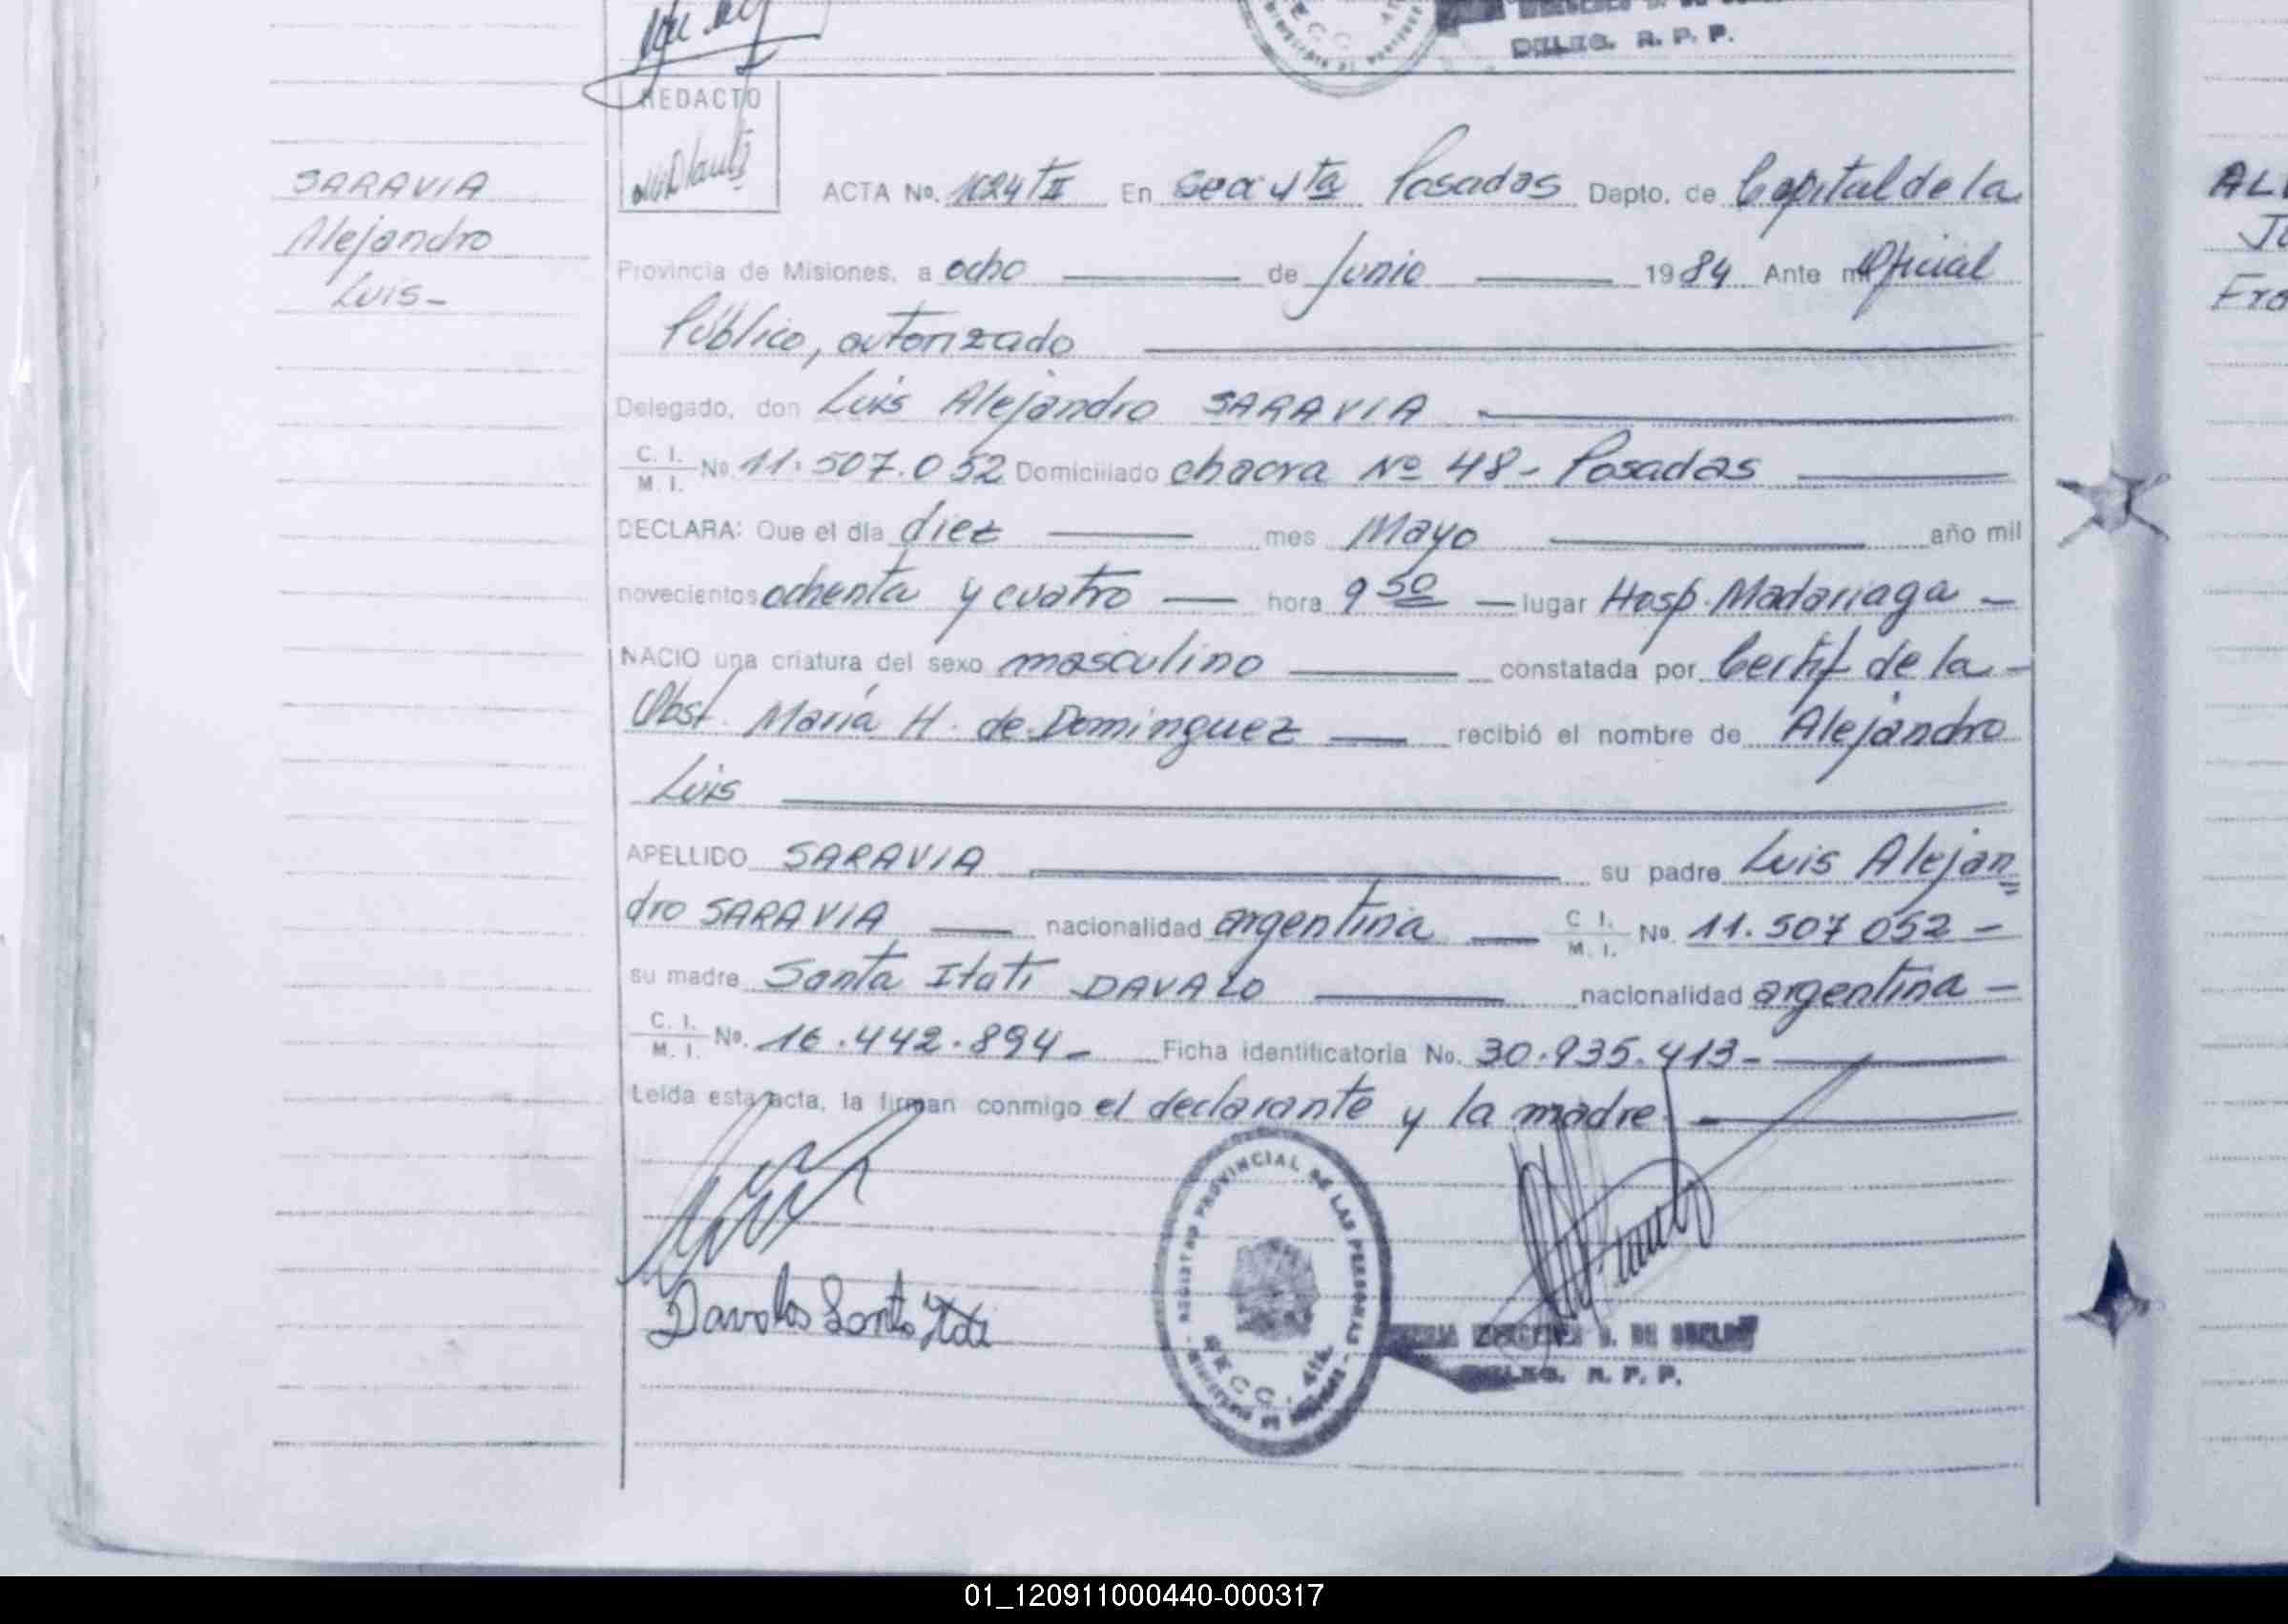 DELEG. R. P. P.
REDACTO
SARAVIA
Alejandro
Luis-
ACTA No. 1024 T II En secc 4ta Posadas Depto. de Capital de la
Provincia de Misiones, a ocho de Junio 1984 Ante mi Oficial
Público, autorizado
Delegado, don Luis Alejandro SARAVIA
C. I. M. I. No. 11.507.052 Domiciliado chacra Nº 48- Posadas
DECLARA: Que el día diez mes Mayo año mil
novecientos ochenta y cuatro hora 9 50 lugar Hosp. Madariaga
NACIO una criatura del sexo masculino constatada por Certif de la
Obst. María H. de Dominguez recibió el nombre de Alejandro
Luis
APELLIDO SARAVIA su padre Luis Alejan
dro SARAVIA nacionalidad argentina C I. M. I. No. 11.507 052 -
su madre Santa Itatí DAVALO nacionalidad argentina -
C. I. M. I. No. 16.442.894- Ficha identificatoria No. 30.935.413-
Leída esta acta, la firman conmigo el declarante y la madre.
REGISTRO PROVINCIAL DE LAS PERSONAS
SECC. 4ta.
Davalos Santa Itati
DELEG. R. P. P.
ALE
Ju
01_120911000440-000317